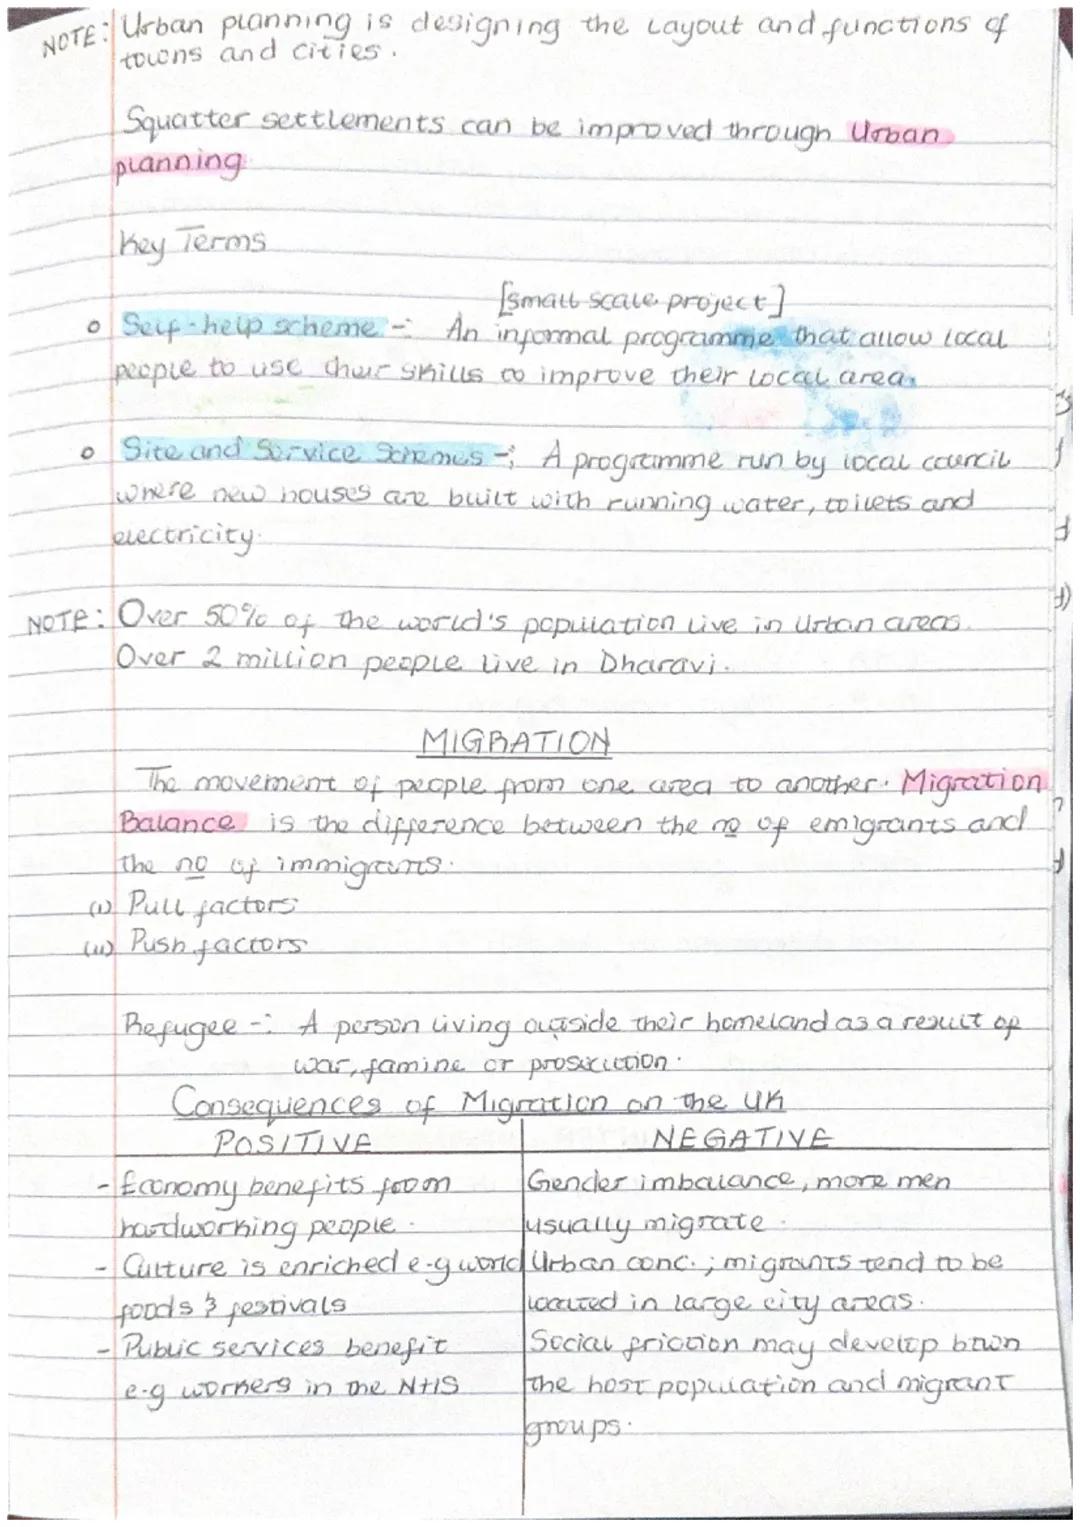 NOTE: Urban planning is designing the layout and functions of
towns and cities.
Squatter settlements can be improved through Urban
planning
Key Terms
[small scale project]
Self-help scheme -: An informal programme that allow local
people to use their skills to improve their local area.
Site and Service Schemes -: A programme run by local council
where new houses are built with running water, toilets and
electricity.
NOTE: Over 50% of the world's population live in Urban areas.
Over 2 million people live in Dharavi.
MIGRATION
The movement of people from one area to another. Migration
Balance is the difference between the no of emigrants and
the no of immigrants.
(i) Pull factors
(ii) Push factors
Refugee -: A person living outside their homeland as a result of
war, famine or prosecution.
Consequences of Migration on the UK
POSITIVE NEGATIVE
- Economy benefits from Gender imbalance, more men
hardworking people. usually migrate.
- Culture is enriched e-g world Urban conc.; migrants tend to be
foods & festivals located in large city areas.
- Public services benefit Social friction may develop btwn
e-g workers in the NHS the host population and migrant
groups.